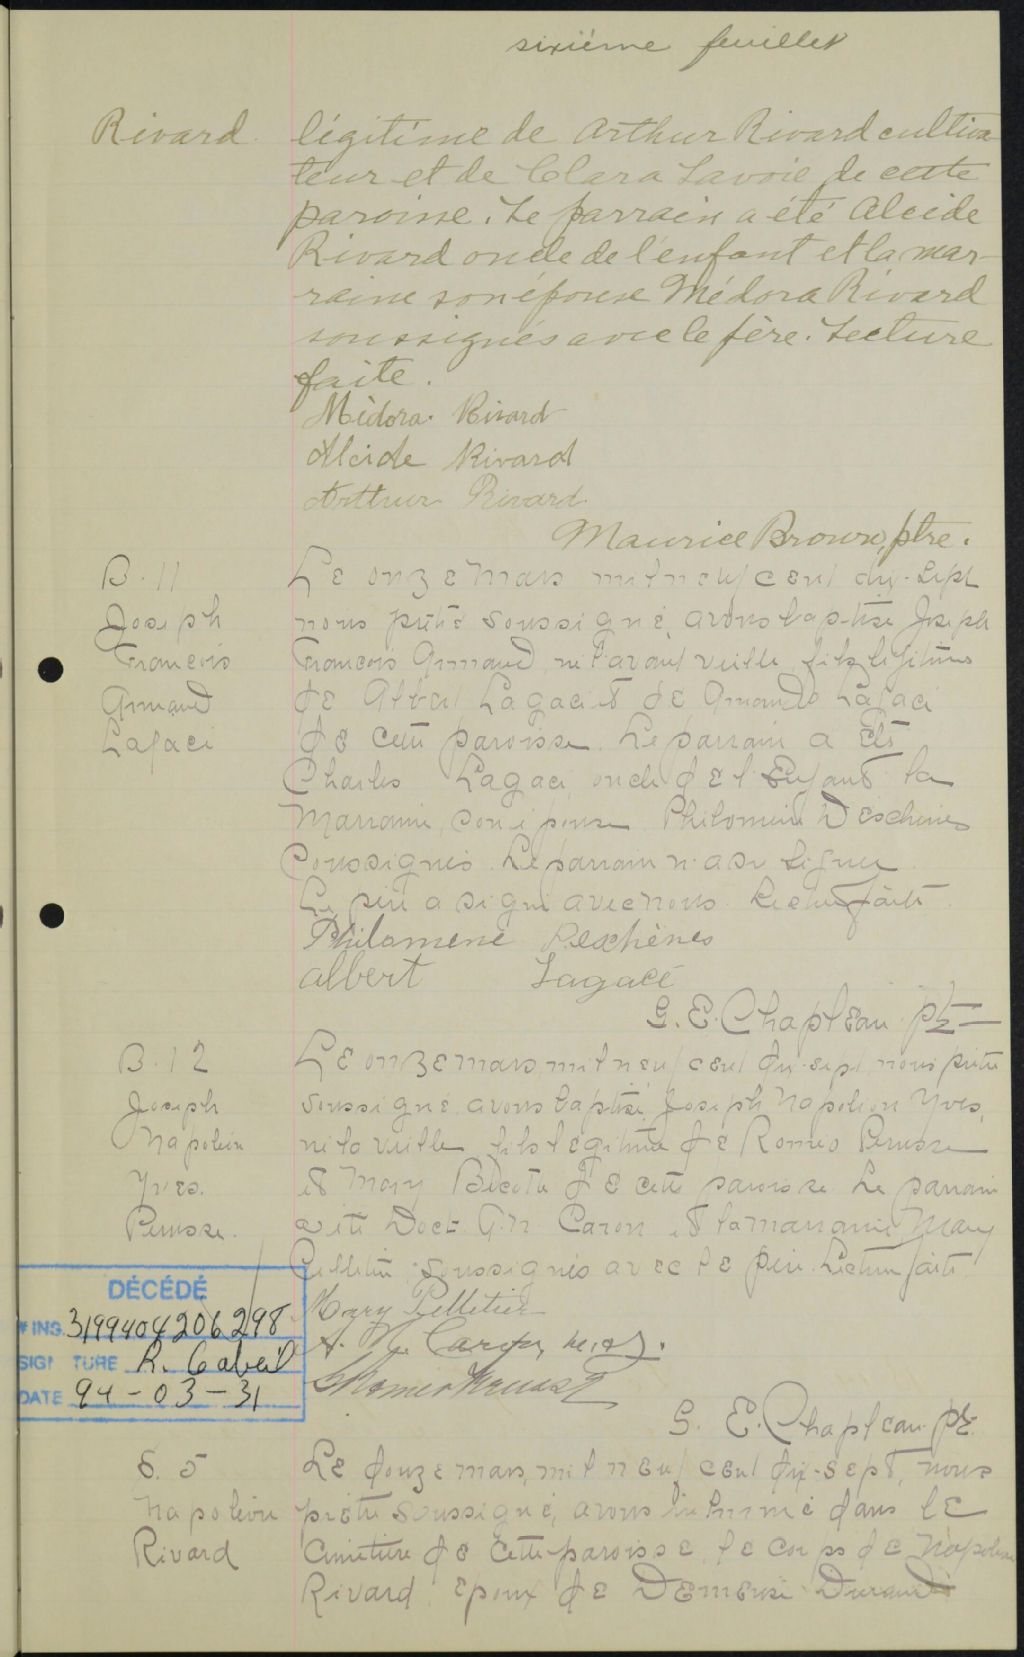 sixième feuillet
Rivard. légitime de Arthur Rivard cultiva
teur et de Clara Savoie de cette
paroisse. Le parrain a été Alcide
Rivard oncle de l'enfant et la mar-
raine son épouse Médora Rivard
soussignés avec le père. Lecture
faite.
Mèdora Rivard
Alcide Rivard
Arthur Rivard.
Maurice Brown, ptre.
B. 11 Le onze mars mil neuf cent dix-sept
Joseph nous prêtre soussigné, avons baptisé Joseph
François François Armand, né l'avant veille, fils légitime
Armand de Albert Lagacé et de Lagacé
Lagacé de cette paroisse. Le parrain a été
Charles Lagacé, oncle de l'enfant la
marraine, son épouse Philomène Deschênes
soussignés. Le parrain n'a su signer
Le père a signé avec nous. Lecture faite
Philomene Deschènes
albert Lagacé
G. E. Chapleau ptr
B. 12 Le onze mars, mil neuf cent dix-sept, nous prêtre
Joseph soussigné avons baptisé Joseph Napoléon Yves,
Napoléon né la veille, fils légitime de Roméo Perusse
Yves. et Mary de cette paroisse. Le parrain
Perusse. a été Doct A. N. Caron et la marraine Mary
Pelletier soussignés avec le père. Lecture faite
DÉCÉDÉ
# INS. 3199404206298
SIGNATURE R.
DATE 94-03-31
Mary Pelletier
A. N. Caron, m.d.
Romeo Perusse
G. E. Chapleau ptr.
S. 5 Le douze mars, mil neuf cent dix-sept, nous
Napoléon prêtre soussigné, avons inhumé dans le
Rivard cimetière de cette paroisse, le corps de Napoléon
Rivard époux de Durand